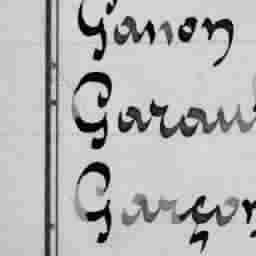 Ganon
Garau
Garçon